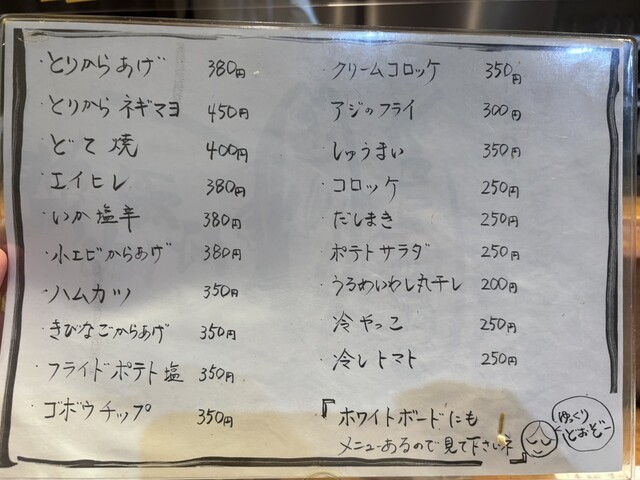 ・とりからあげ 380円
・とりからネギマヨ 450円
・どて焼 400円
・エイヒレ 380円
・いか塩辛 380円
・小エビからあげ 380円
・ハムカツ 350円
・きびなごからあげ 350円
・フライドポテト塩 350円
・ゴボウチップ 350円
・クリームコロッケ 350円
・アジのフライ 300円
・しゅうまい 350円
・コロッケ 250円
・だしまき 250円
・ポテトサラダ 250円
・うるめいわし丸干し 200円
・冷やっこ 250円
・冷しトマト 250円
『ホワイトボードにも
メニューあるので見て下さいネ』
ゆっくり
どおぞー